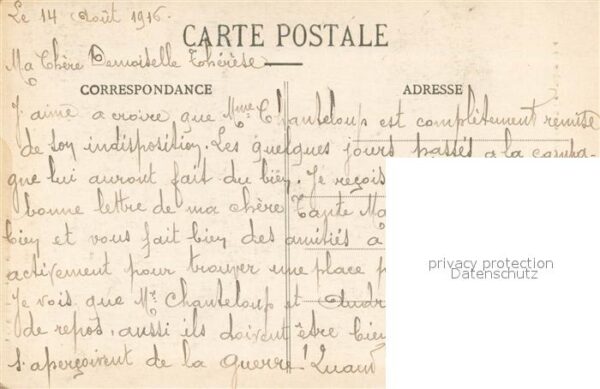 Le 14 Août 1916.
CARTE POSTALE
Ma Chère Demoiselle Thérèse
CORRESPONDANCE
ADRESSE
J'aime a croire que Mme Chanteloup est complètement remise
de son indisposition. Les quelques jours passés a la campa-
gne lui auront fait du bien. Je reçois
bonne lettre de ma chère Tante Ma
bien et vous fait bien des amitiés à
activement pour trouver une place p
Je vois que Mr Chanteloup et
de repos, aussi ils doivent être bien
s'aperçoivent de la guerre! Quand
privacy protection
Datenschutz